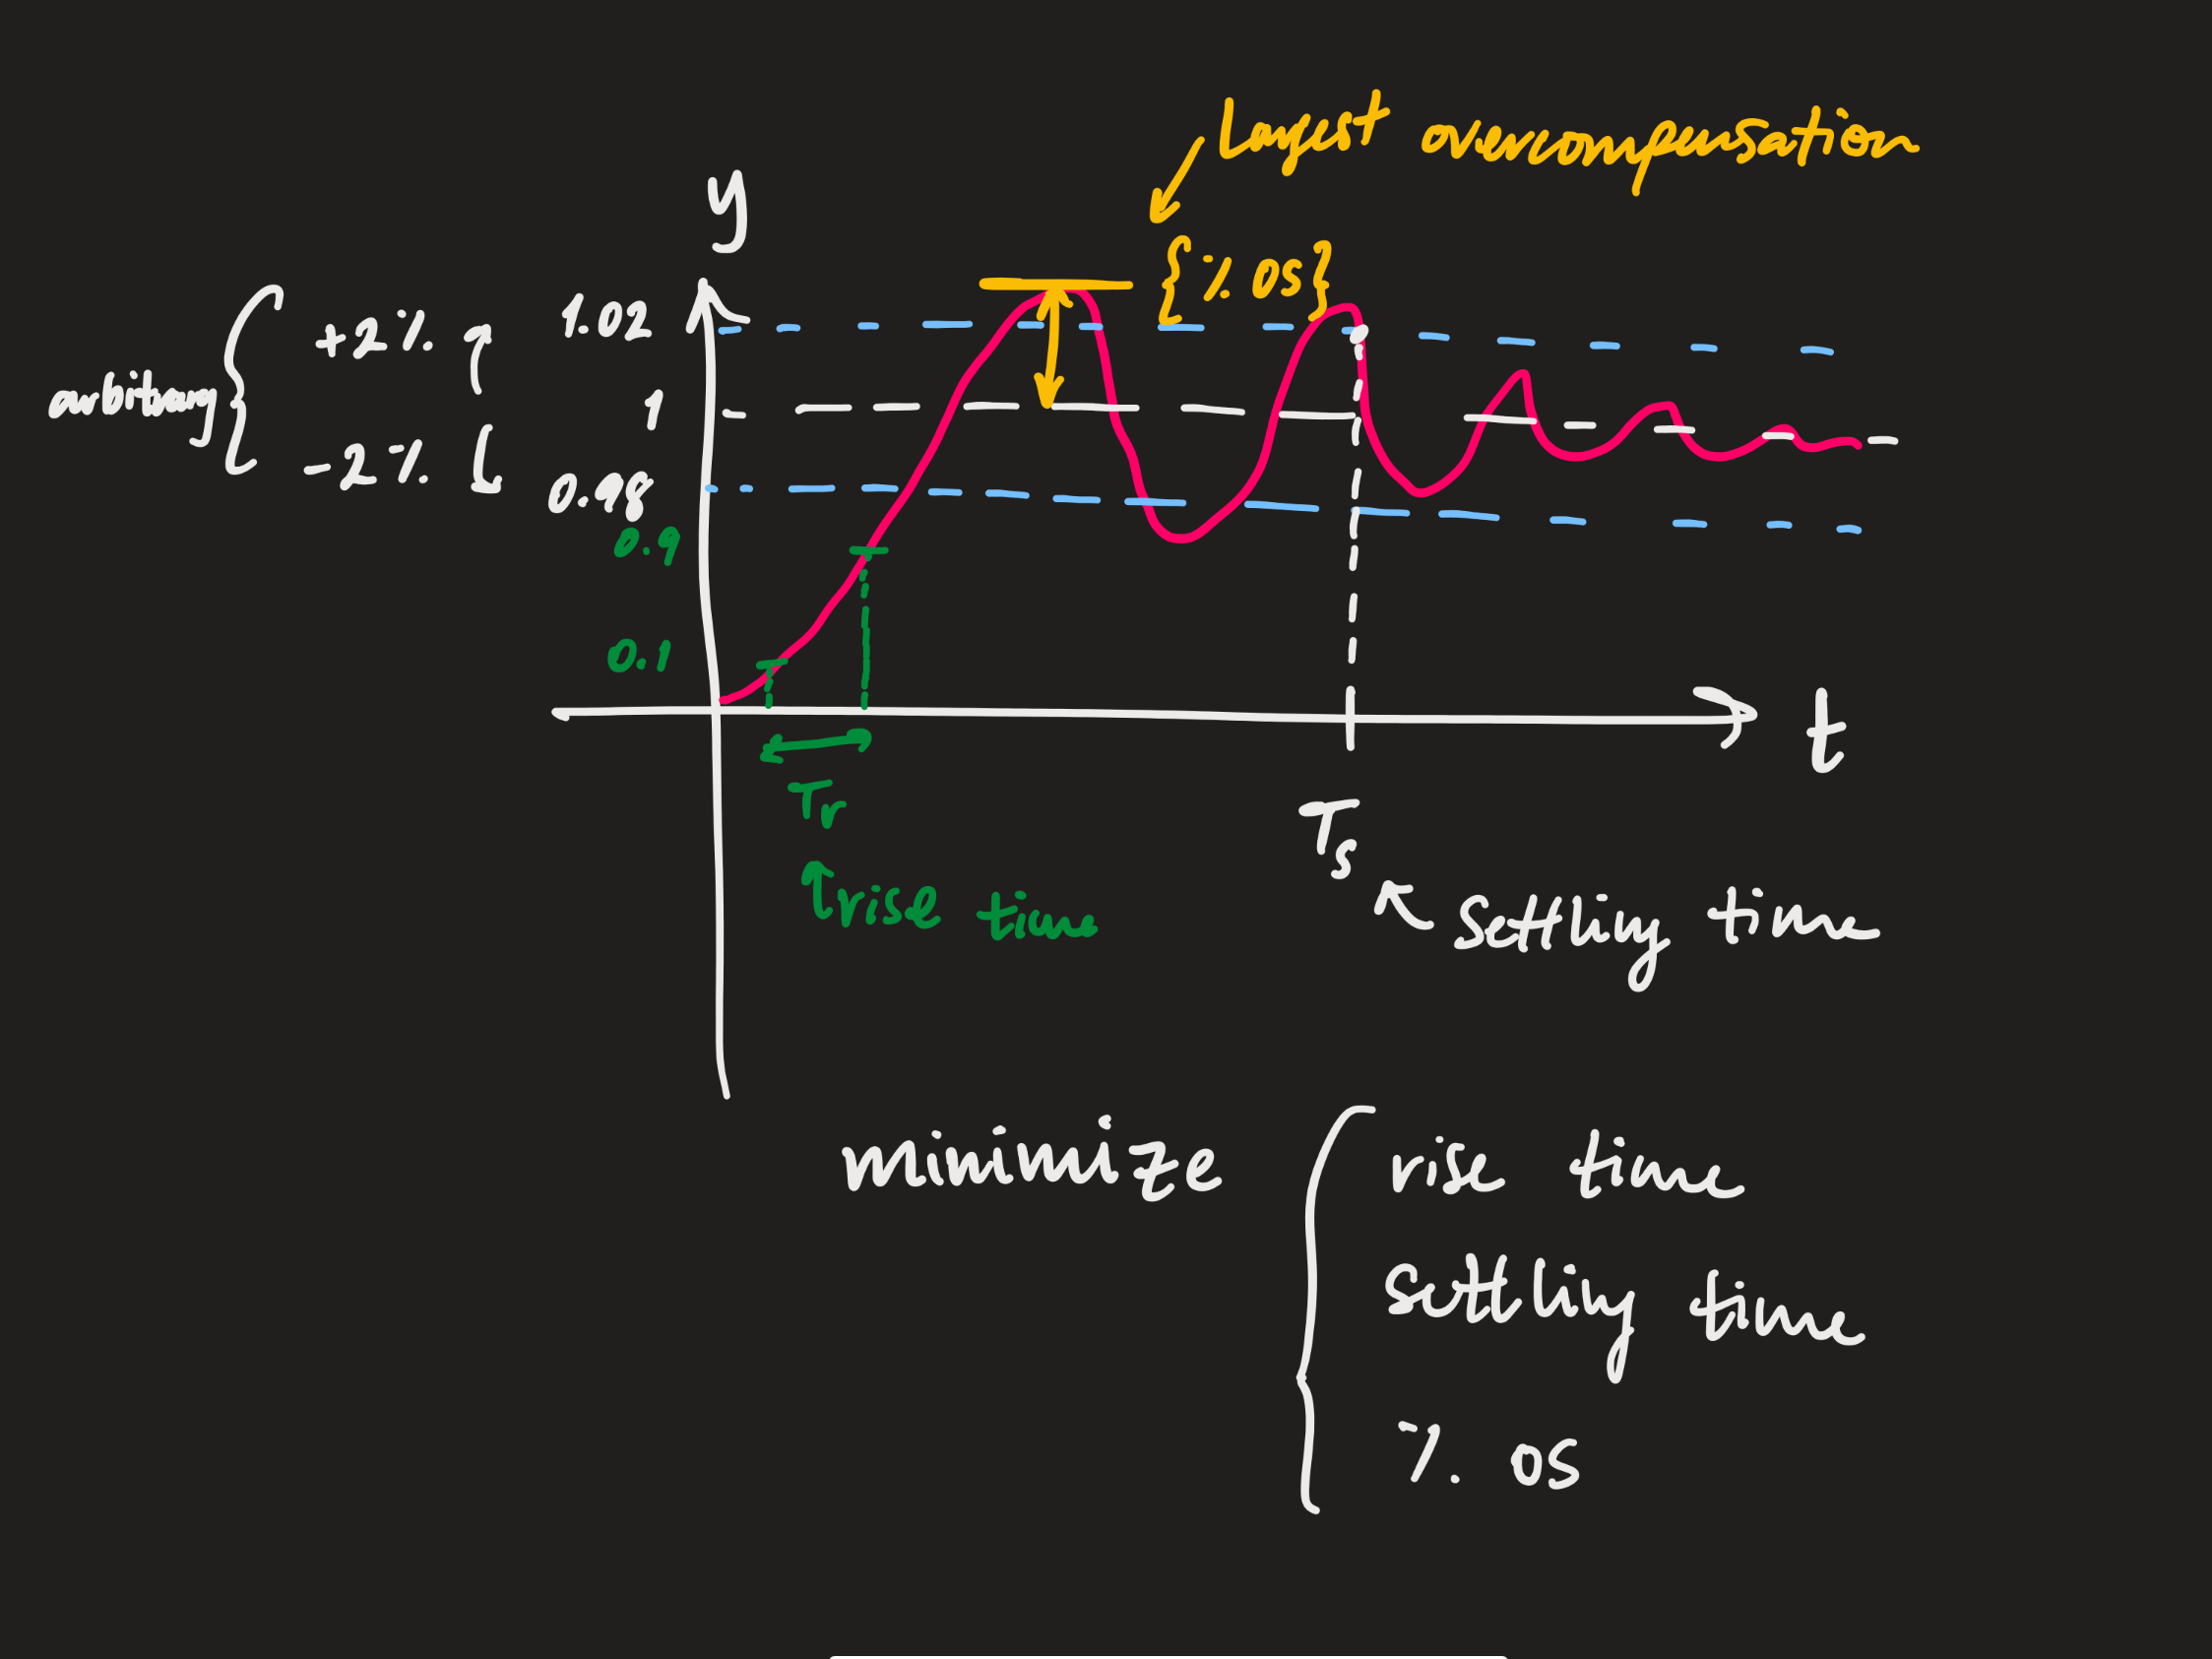 largest overcompensation
y
{% os}
+2%
1.02
arbitrary
1
-2%
0.98
0.9
0.1
t
Tr
Ts
rise time
settling time
minimize
rise time
settling time
% os